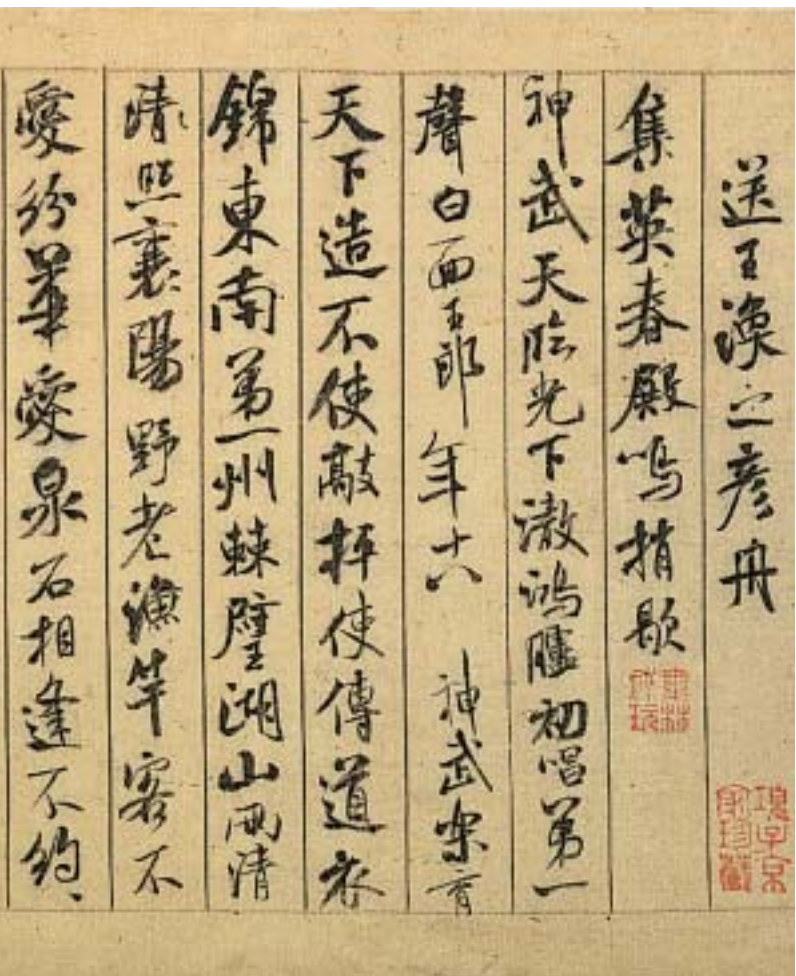 送王渙之彥舟
集英春殿鳴捎歇
神武天臨光下澈鴻臚初唱第一
聲白面王郎年十八神武樂育
天下造不使敲枰使傳道衣
錦東南第一州棘璧湖山兩清
照襄陽野老漁竿客不
愛紛華愛泉石相逢不約